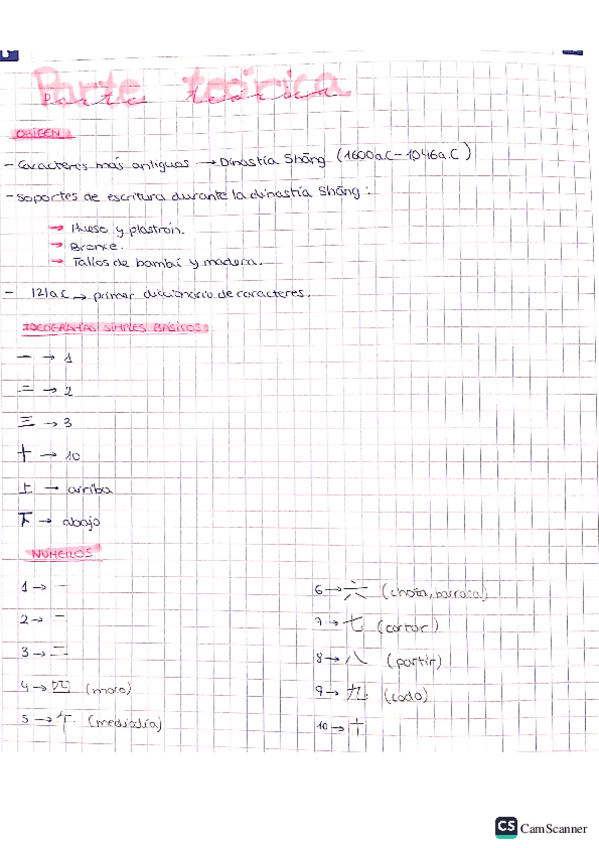 Parte teórica
ORIGEN
- Caracteres más antiguos → Dinastía Shāng (1600a.C - 1046a.C)
- Soportes de escritura durante la dinastía Shāng:
→ Hueso y plastrón.
→ Bronce.
→ Tallos de bambú y madera.
- 121a.C → primer diccionario de caracteres.
IDEOGRAMAS SIMPLES BÁSICOS:
一 → 1
二 → 2
三 → 3
十 → 10
上 → arriba
下 → abajo
NÚMEROS
1 → 一
2 → 二
3 → 三
4 → 四 (moco)
5 → 午 (mediodía)
6 → 六 (choza, barraca)
7 → 七 (cortar)
8 → 八 (partir)
9 → 九 (codo)
10 → 十
CS CamScanner